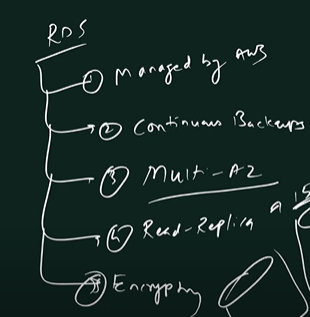 RDS
① Managed by AWS
② Continuous Backups
③ Multi-AZ
④ Read-Replica
⑤ Encryption
A